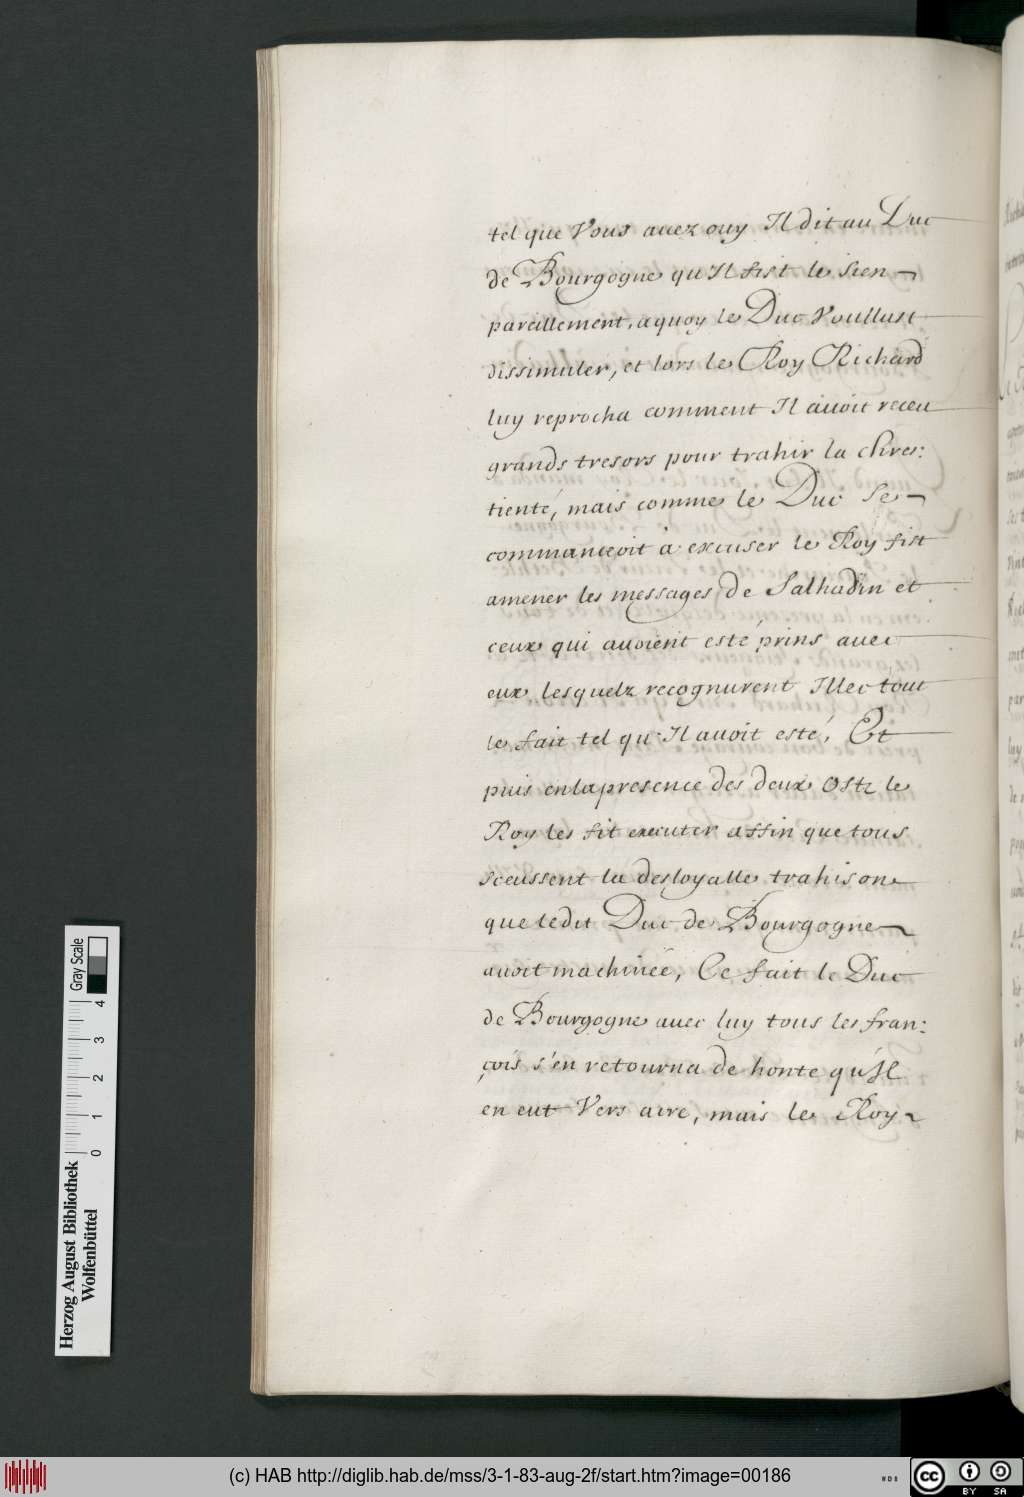 tel que Vous auez ouy Il dit au Duc
de Bourgogne qu'Il fist le sien
pareillement, aquoy le Duc Voullust
dissimuler, et lors le Roy Richard
luy reprocha comment Il auoit receu
grands tresors pour trahir la chres:
tienté, mais comme le Duc Se
commanceoit a excuser le Roy fist
amener les messages de Salhadin et
ceux qui auoient esté prins auec
eux lesquelz recognurent Illec tout
le fait tel qu'Il auoit esté, Et
puis en la presence des deux Ostz le
Roy les fit executer affin que tous
sceussent la desloyalle trahison
que ledit Duc de Bourgogne
auoit machinée, Ce fait le Duc
de Bourgogne auec luy tous les fran:
çois s'en retourna de honte qu'Il
en eut Vers acre, mais le Roy
Herzog August Bibliothek
Wolfenbüttel
0 1 2 3 4
Gray Scale
(c) HAB http://diglib.hab.de/mss/3-1-83-aug-2f/start.htm?image=00186
WDB
cc BY SA